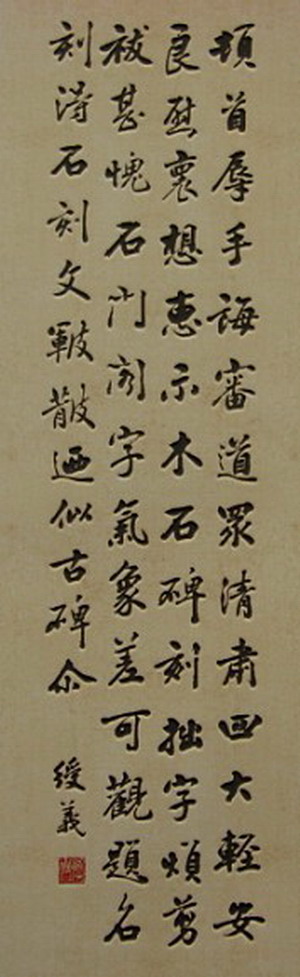 頓首辱手誨審道眾清肅四大輕安
良慰褱想惠示木石碑刻拙字煩剪
祓甚愧石門閣字氣象差可觀題名
刻得石刻文皸皵迺似古碑尒
綬義